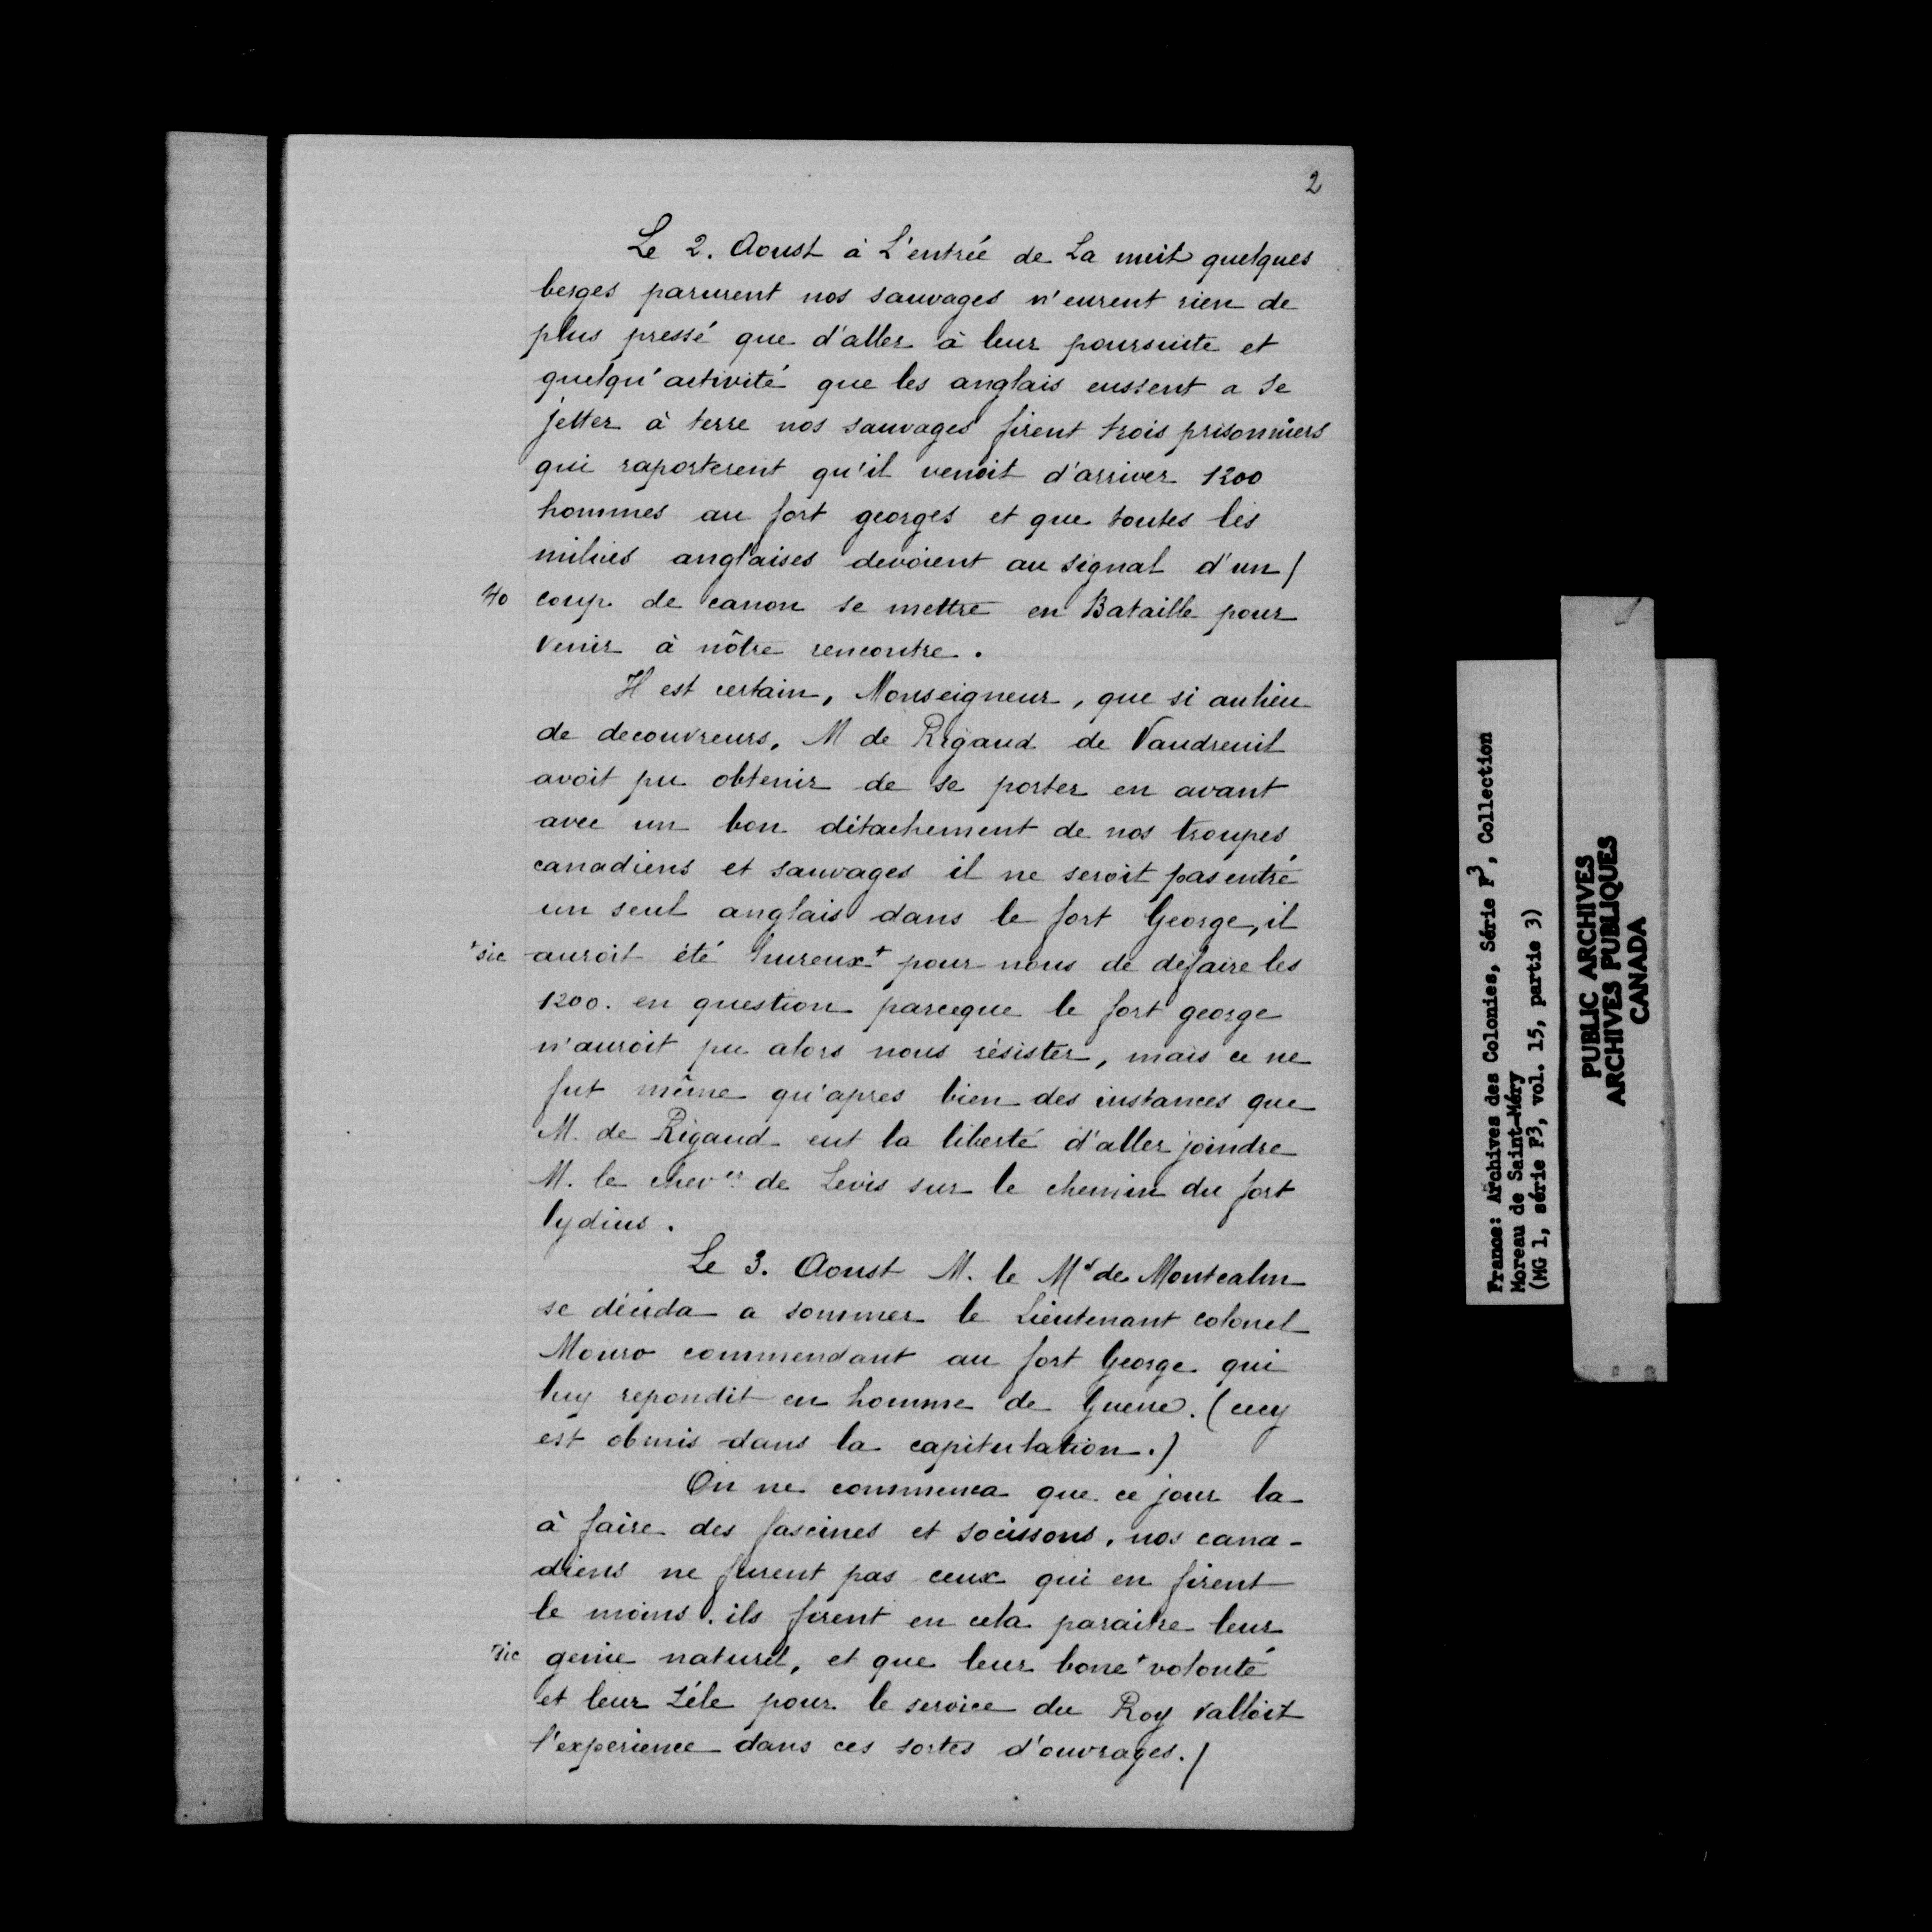 2
Le 2. Aoust à L'entrée de La nuit quelques
berges parurent nos sauvages n'eurent rien de
plus pressé que d'aller à leur poursuite et
quelqu'activité que les anglais eussent a se
jetter à terre nos sauvages firent trois prisonniers
qui raporterent qu'il venoit d'arriver 1200
hommes au fort georges et que toutes les
milices anglaises devoient au signal d'un /
coup de canon se mettre en Bataille pour
venir à nôtre rencontre.
Il est certain, Monseigneur, que si aulieu
de decouvreurs, M de Rigaud de Vaudreuil
avoit pu obtenir de se porter en avant
avec un bon détachement de nos troupes,
canadiens et sauvages il ne seroit pas entré
un seul anglais dans le fort George, il
+sic auroit été hureux+ pour nous de défaire les
1200. en question parceque le fort george
n'auroit pu alors nous résister, mais ce ne
fut même qu'apres bien des instances que
M. de Rigaud eut la liberté d'aller joindre
M. le chever de Levis sur le chemin du fort
lydius.
Le 3. Aoust M. le Mis de Montcalm
se décida a sommer le Lieutenant colonel
Monro commendant au fort George qui
luy repondit en homme de Guerre. (cecy
est obmis dans la capitulation.)
On ne commenca que ce jour la
à faire des fascines et socissons, nos cana-
diens ne furent pas ceux qui en firent
le moins. ils firent en cela paraitre leur
+sic genie naturel, et que leur bone+ volonté
et leur Zéle pour le service du Roy valloit
l'experience dans ces sortes d'ouvrages. /
France: Archives des Colonies, Série F3, Collection
Moreau de Saint-Méry
(MG 1, série F3, vol. 15, partie 3)
PUBLIC ARCHIVES
ARCHIVES PUBLIQUES
CANADA